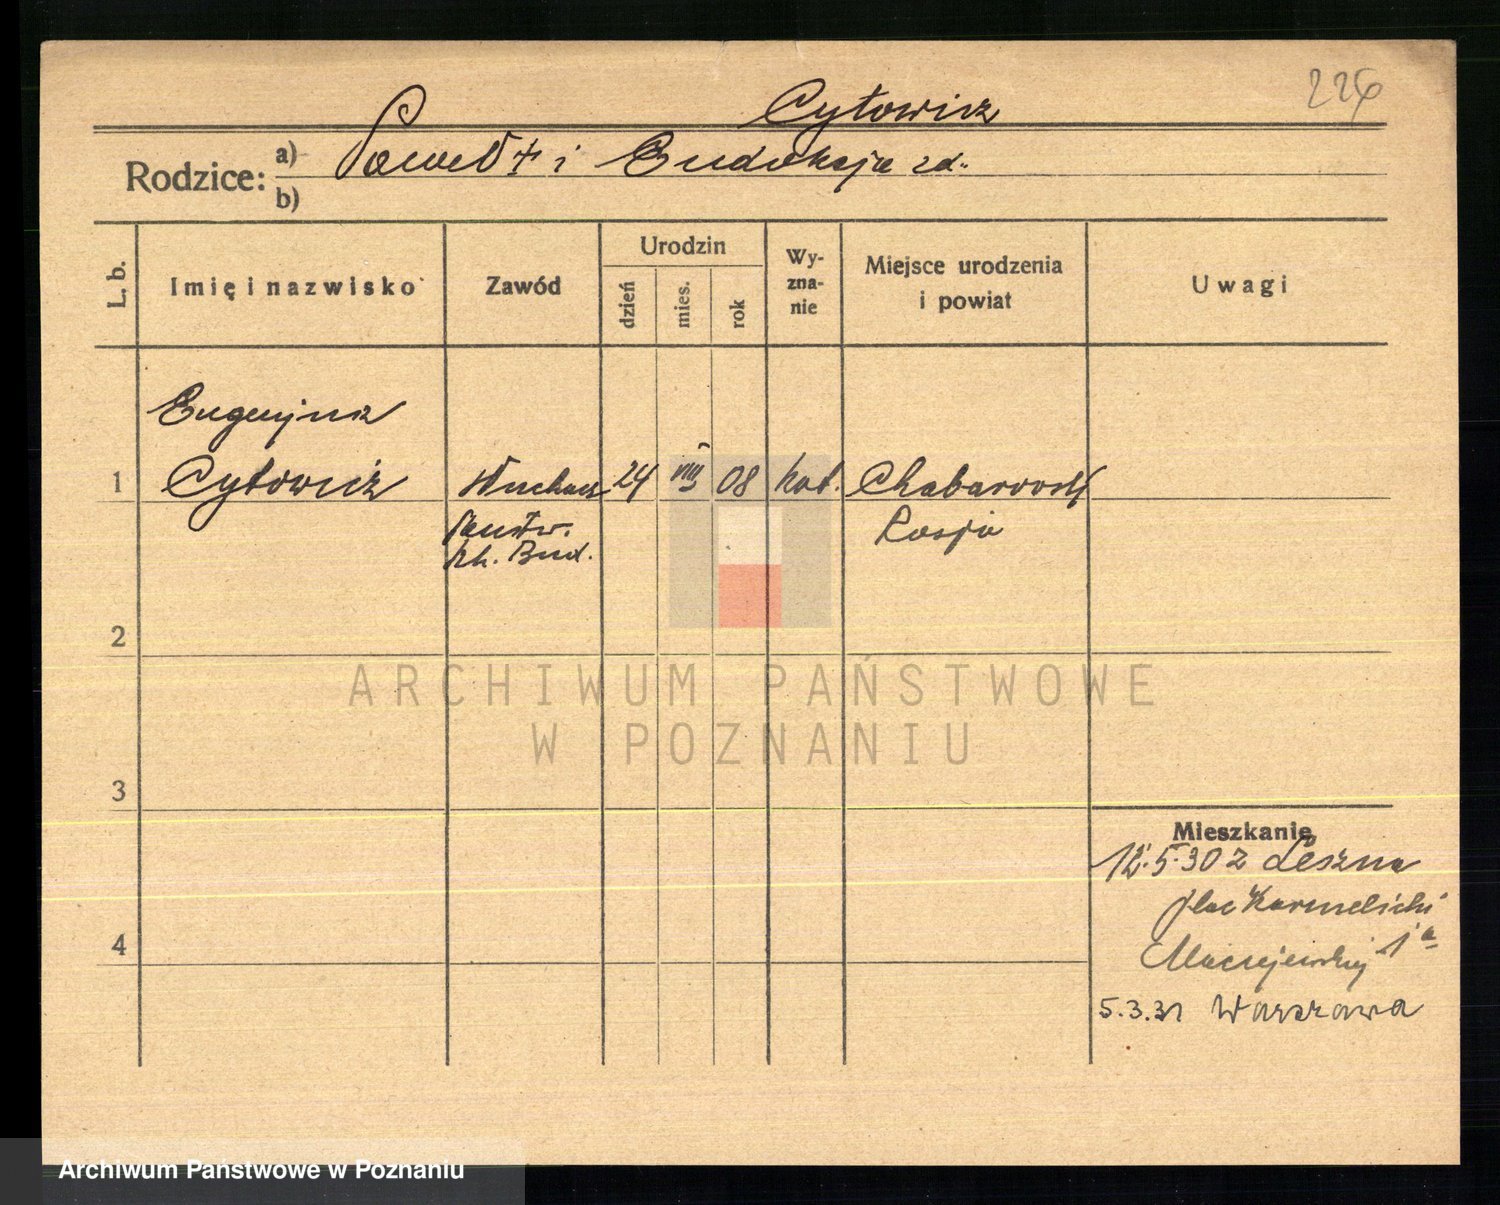 226
Cytowicz
Rodzice: a) Paweł + i Eudoksja zd.
b)
L. b.
Imię i nazwisko
Zawód
Urodzin
dzień
mies.
rok
Wy-
zna-
nie
Miejsce urodzenia
i powiat
Uwagi
Eugenjusz
1 Cytowicz Słuchacz 24 VIII 08 kat. Chabarowsk
Państw. Rosja
Bud.
2
3
4
Mieszkanie
12.5.30 z Leszna
plac Karmelicki
1a
5.3.31 Warszawa
ARCHIWUM PAŃSTWOWE
W POZNANIU
Archiwum Państwowe w Poznaniu